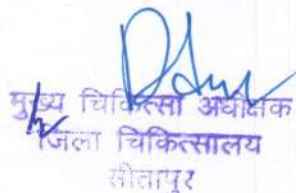 मुख्य चिकित्सा अधीक्षक
जिला चिकित्सालय
सीतापुर